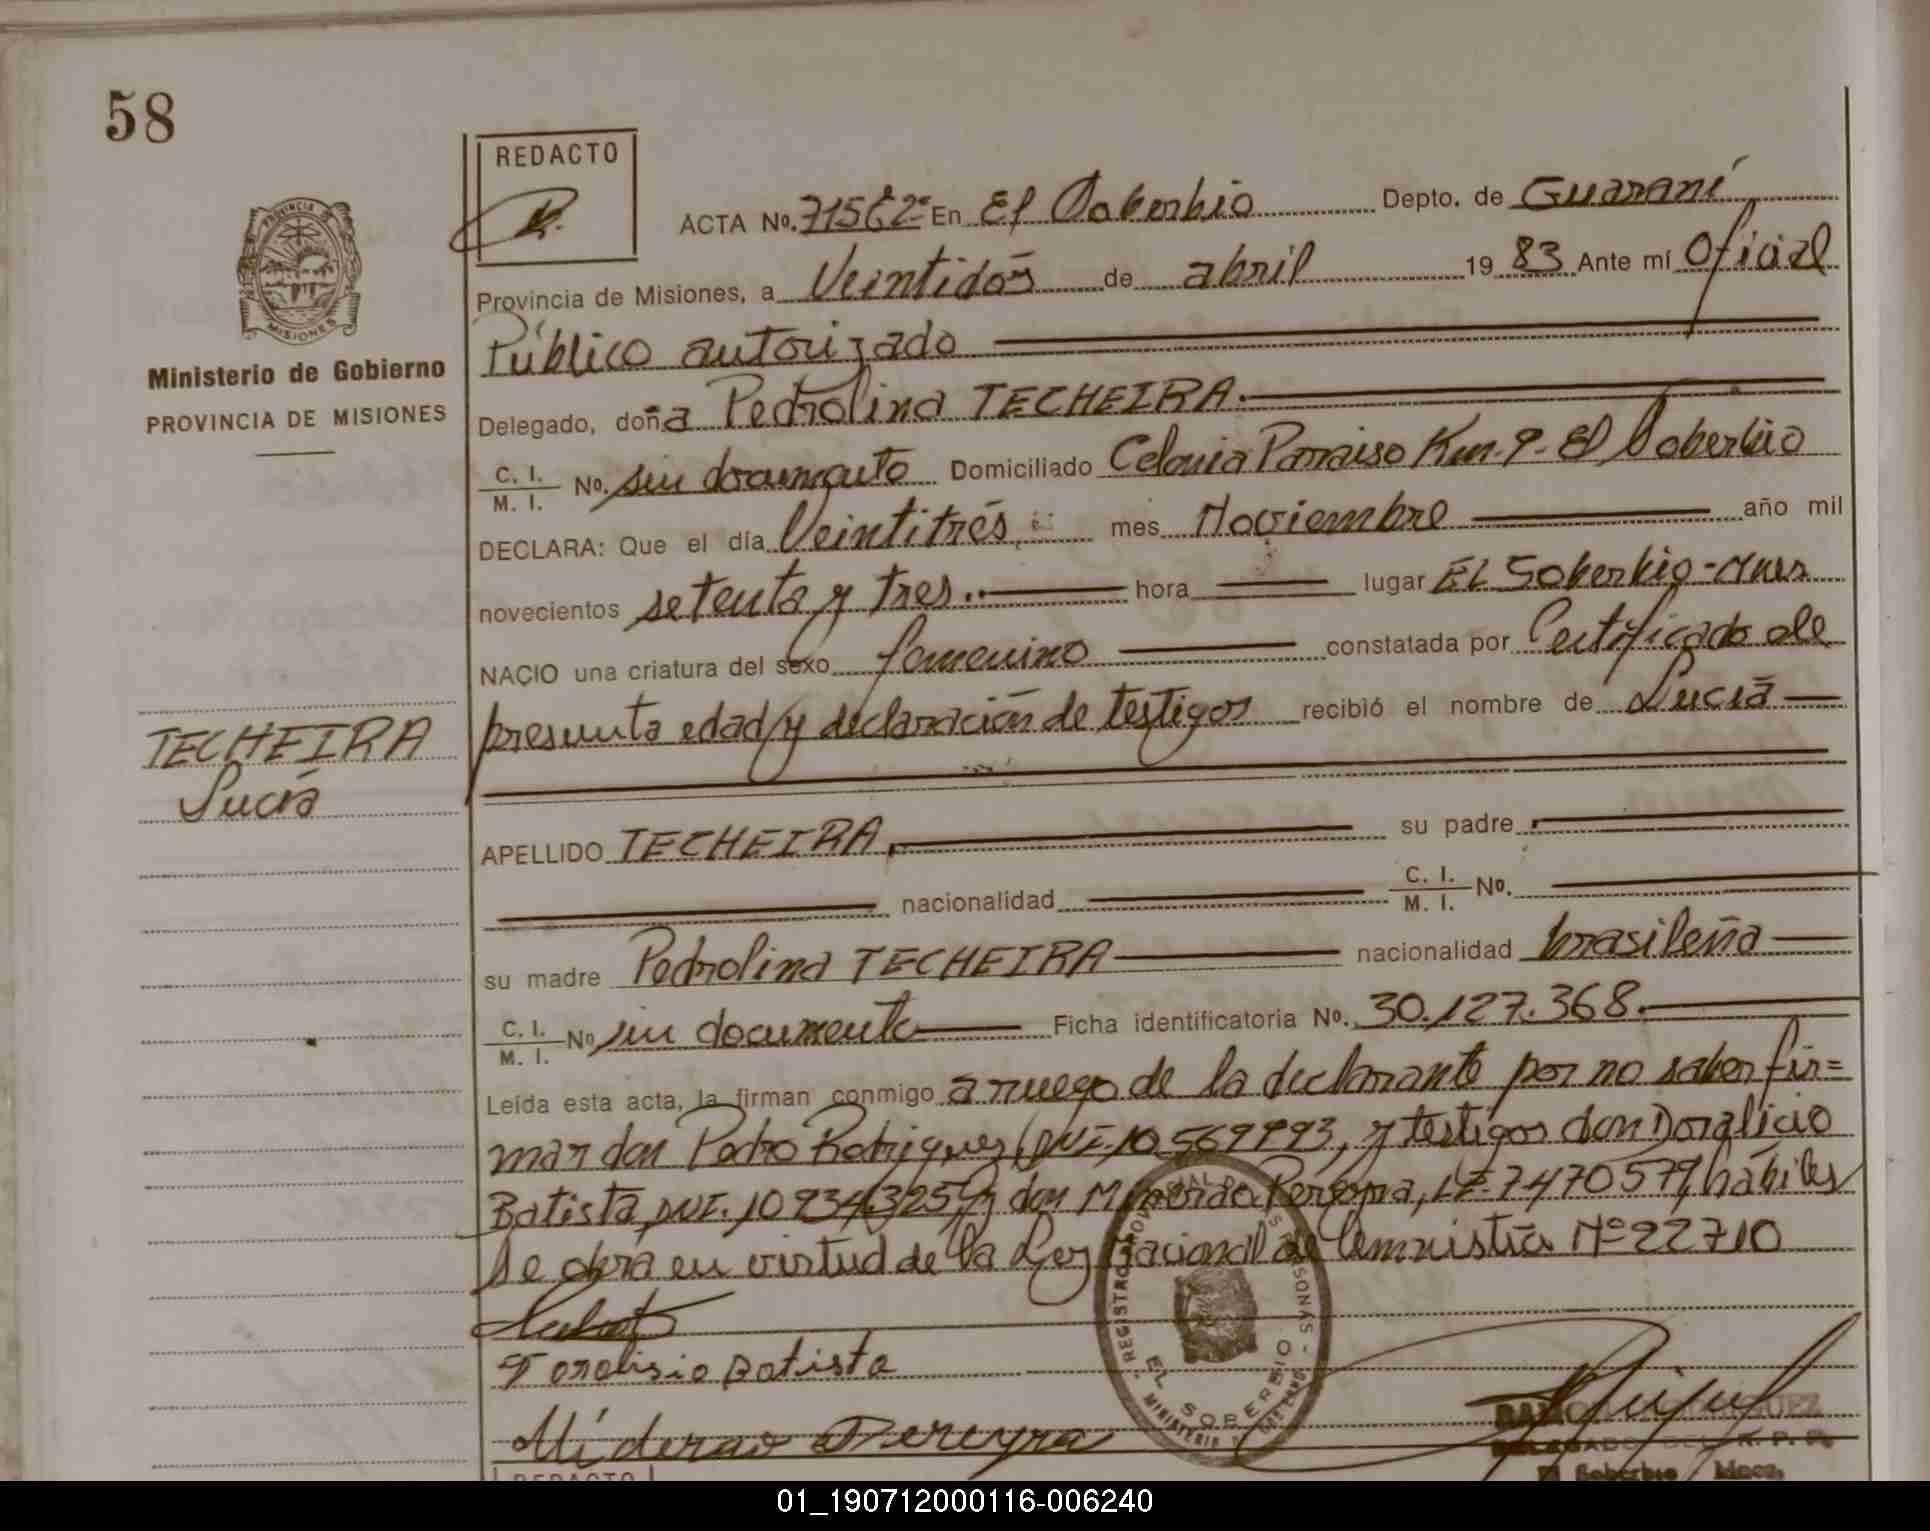 58
REDACTO
ACTA No. 715 t 2º En El Soberbio Depto. de Guaraní
Provincia de Misiones, a Veintidós de abril 19 83 Ante mí Oficial
Público autorizado
Delegado, doña Pedrolina TECHEIRA.
C. I. / M. I. No. sin documento Domiciliado Colonia Paraiso Km. 9 - El Soberbio
DECLARA: Que el día Veintitrés mes Noviembre año mil
novecientos setenta y tres.. hora lugar EL Soberbio - Mnes
NACIO una criatura del sexo femenino constatada por Certificado de
presunta edad y declaración de testigos recibió el nombre de Lucía
APELLIDO TECHEIRA, su padre
nacionalidad C. I. / M. I. No.
su madre Pedrolina TECHEIRA nacionalidad brasileña
C. I. / M. I. No sin documento Ficha identificatoria No. 30.127.368.
Leída esta acta, la firman conmigo a ruego de la declarante por no saber fir=
mar don Pedro Rodriguez, DNI. 10.569993, y testigos don Doralicio
Batista, DNI. 10934325, y don Pereyra, LE. 7470579, hábiles
Se obra en virtud de la Ley Nacional de Amnistía Nº 22710
Batista
Pereyra
PROVINCIA DE
MISIONES
Ministerio de Gobierno
PROVINCIA DE MISIONES
TECHEIRA
Lucía
EL SOBERBIO
DELEGADO DEL R. P. P.
El Soberbio Mnes.
REDACTO
01_190712000116-006240